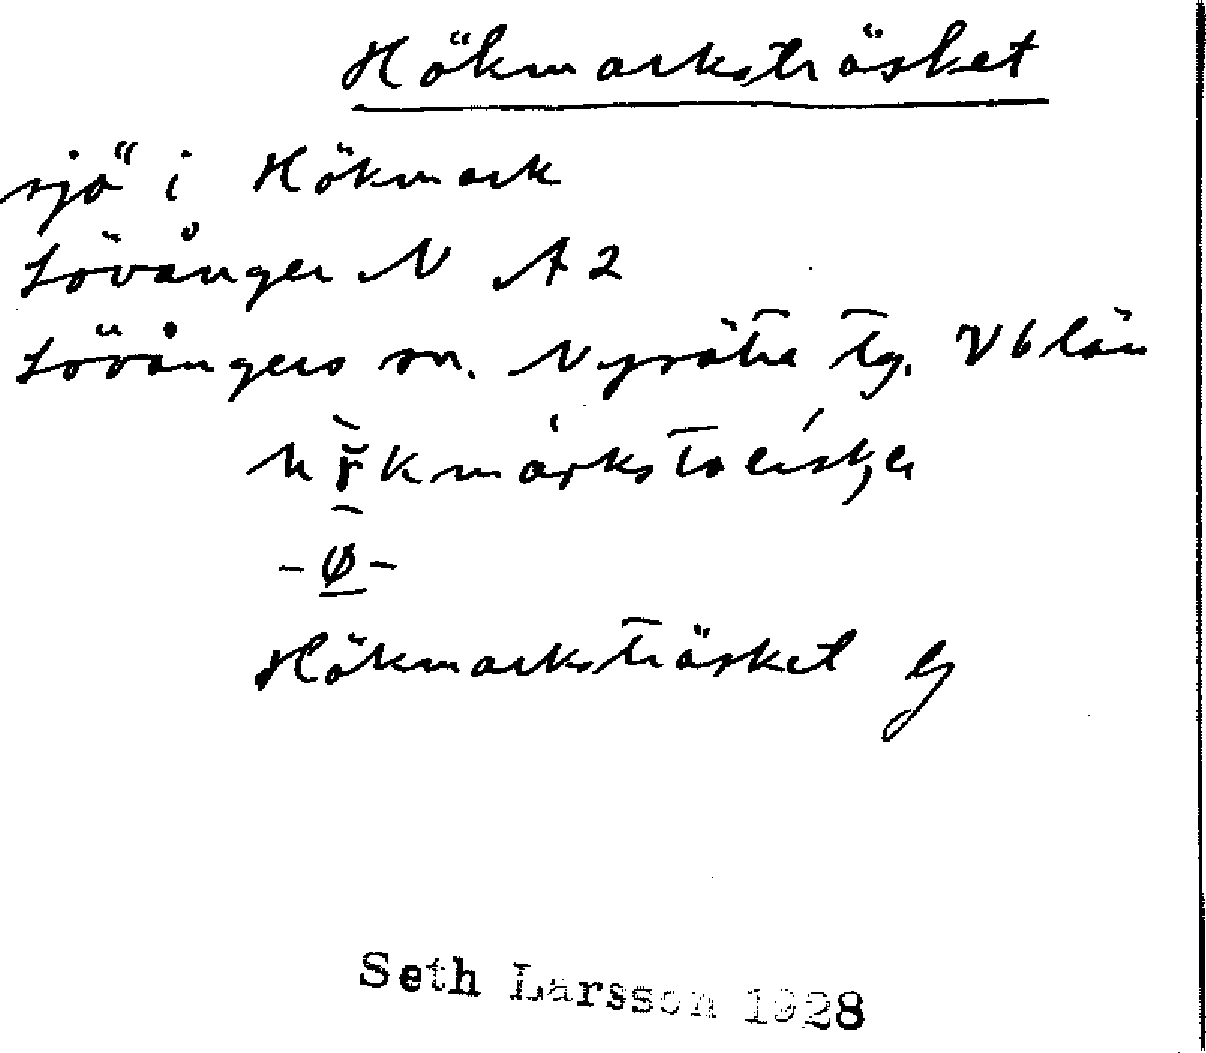 Hökmarksträsket
sjö i Hökmark
Lövånger N A 2
Lövångers sn. Nysätra tg. Vb län
-ø-
Hökmarksträsket
Seth Larsson 1928